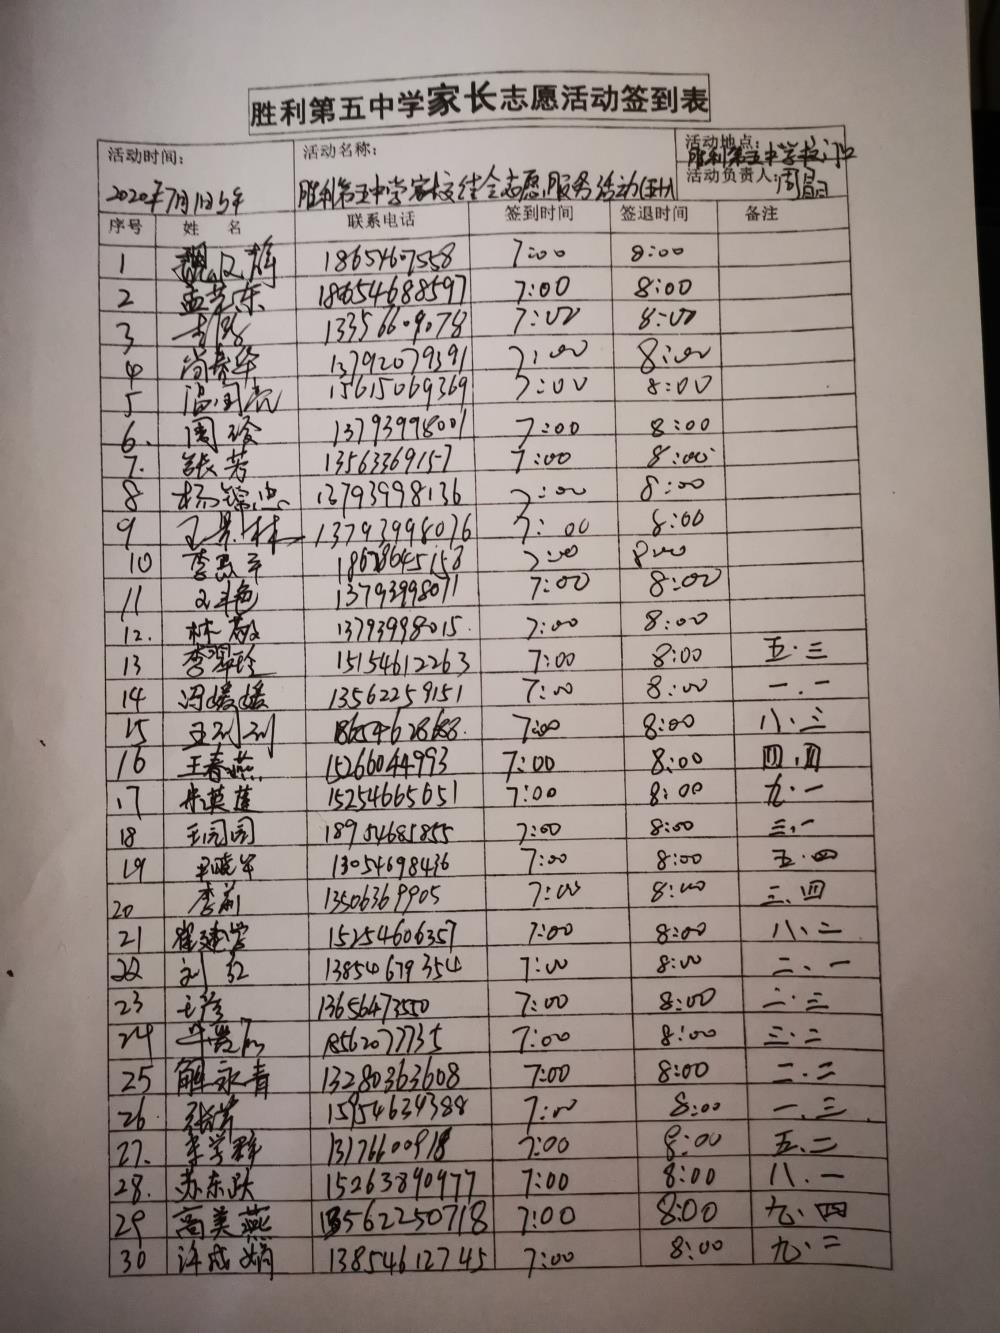 胜利第五中学家长志愿活动签到表
活动时间: 活动名称: 活动地点: 胜利第五中学校门口
2020年7月1日 胜利第五中学家校结合志愿服务活动 活动负责人:周昌
序号 姓名 联系电话 签到时间 签退时间 备注
1 7:00 8:00
2 孟荣东 18654688597 7:00 8:00
3 13356609078 7:00 8:00
4 尚春华 13792079391 7:00 8:00
5 15615069369 7:00 8:00
6. 周玲 13793998001 7:00 8:00
7. 张芳 13563369157 7:00 8:00
8 13793998136 7:00 8:00
9 13793998076 7:00 8:00
10 7:00 8:00
11 13793998071 7:00 8:00
12. 林敏 13793998015 7:00 8:00
13 李翠珍 15154612263 7:00 8:00 五.三
14 冯媛媛 13562259151 7:00 8:00 一.一
15 王列列 7:00 8:00 八.三
16 王春燕 15266044993 7:00 8:00 四.四
17 朱英莲 15254665651 7:00 8:00 九.一
18 王园园 18954685855 7:00 8:00 三.一
19 王晓军 13054698436 7:00 8:00 五.四
20 李莉 13506369905 7:00 8:00 三.四
21 崔建营 15254606357 7:00 8:00 八.二
22 刘红 13854679354 7:00 8:00 二.一
23 王珍 13656473550 7:00 8:00 二.三
24 7:00 8:00 三.二
25 解永青 13280363608 7:00 8:00 二.二
26 张芹 15954634388 7:00 8:00 一.三
27. 李学群 13176600918 7:00 8:00 五.二
28. 苏东跃 15263890977 7:00 8:00 八.一
29 高美燕 13562250718 7:00 8:00 九.四
30 许成娟 13854612745 7:00 8:00 九.二